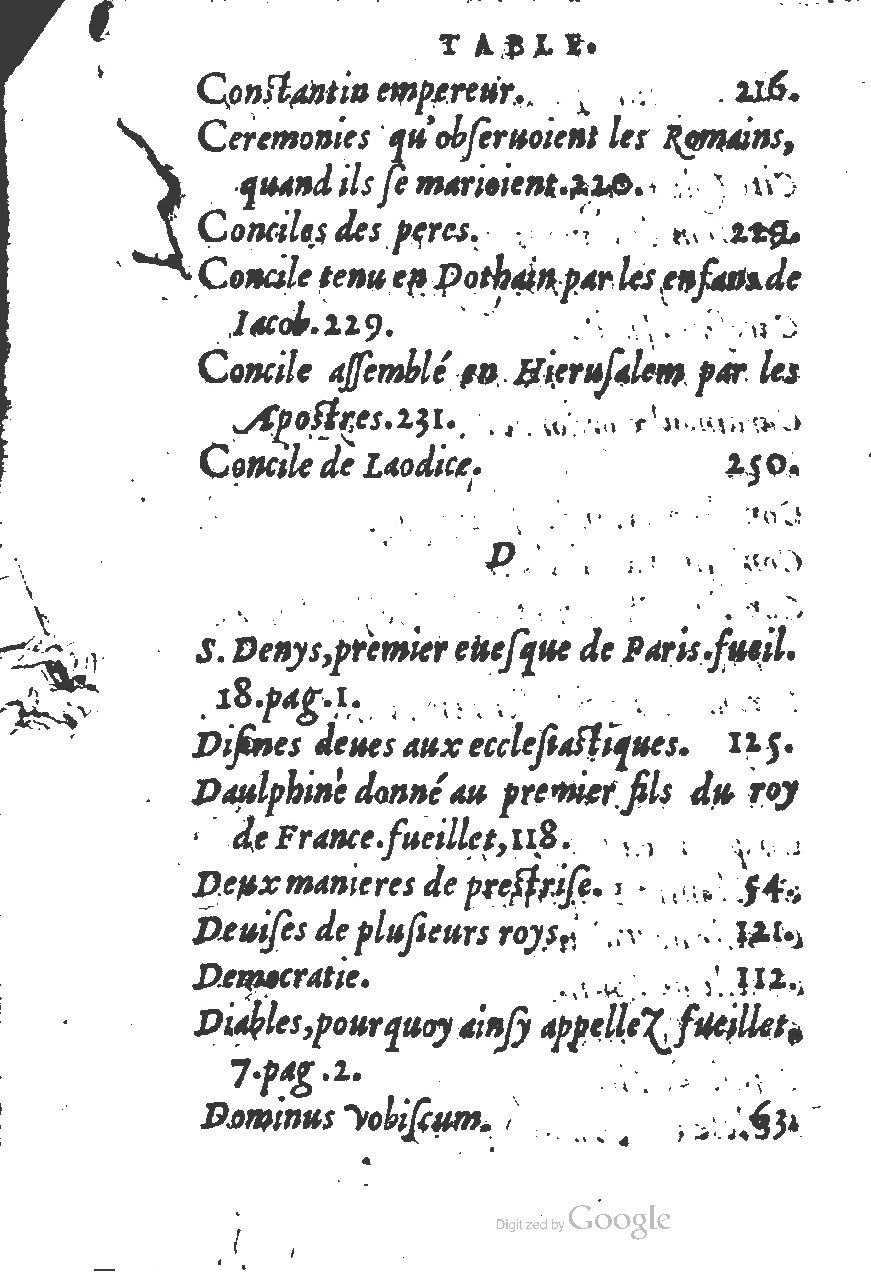 TABLE.
Constantin empereur. 216.
Ceremonies qu'obſeruoient les Romains,
quand ils ſe marioient. 220.
Conciles des peres. 229.
Concile tenu en Dothain par les enfans de
Iacob. 229.
Concile aſſemblé en Hieruſalem par les
Apostres. 231.
Concile de Laodice. 250.
D
S. Denys, premier eueſque de Paris. fueil.
18. pag. 1.
Diſmes deues aux eccleſiastiques. 125.
Daulphiné donné au premier fils du roy
de France. fueillet, 118.
Deux manieres de prestriſe. 54.
Deuiſes de pluſieurs roys. 121.
Democratie. 112.
Diables, pourquoy ainſy appellez, fueillet.
7. pag. 2.
Dominus vobiſcum. 63.
Digitized by Google